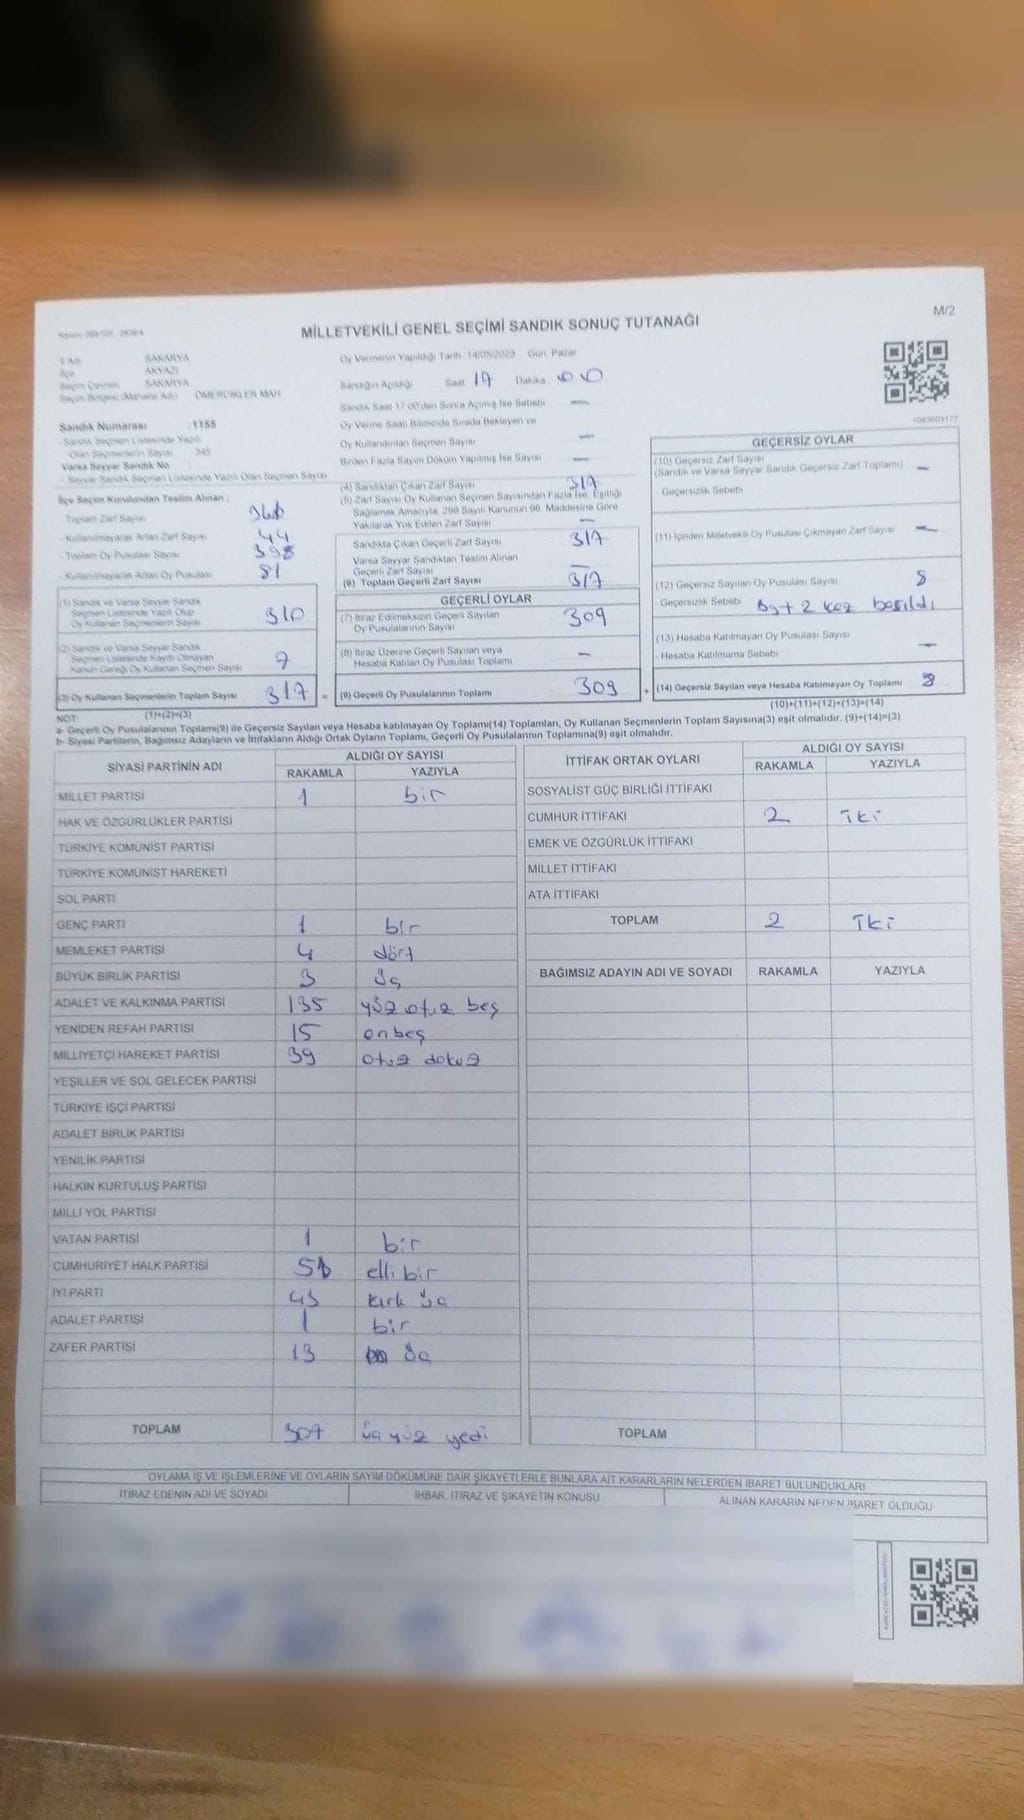 M/2
MİLLETVEKİLİ GENEL SEÇİMİ SANDIK SONUÇ TUTANAĞI
İl Adı SAKARYA
İlçe AKYAZI
Seçim Çevresi SAKARYA
Seçim Bölgesi (Mahalle Adı) ÖMERCİKLER MAH
Sandık Numarası : 1155
- Sandık Seçmen Listesinde Yazılı
Olan Seçmenlerin Sayısı 345
Varsa Seyyar Sandık No :
- Seyyar Sandık Seçmen Listesinde Yazılı Olan Seçmen Sayısı
İlçe Seçim Kurulundan Teslim Alınan ;
- Toplam Zarf Sayısı
- Kullanılmayarak Artan Zarf Sayısı 44
- Toplam Oy Pusulası Sayısı 398
- Kullanılmayarak Artan Oy Pusulası 81
(1) Sandık ve Varsa Seyyar Sandık
Seçmen Listesinde Yazılı Olup
Oy Kullanan Seçmenlerin Sayısı 310
(2) Sandık ve Varsa Seyyar Sandık
Seçmen Listesinde Kayıtlı Olmayan
Kanun Gereği Oy Kullanan Seçmen Sayısı 7
(3) Oy Kullanan Seçmenlerin Toplam Sayısı 317 =
Oy Vermenin Yapıldığı Tarih 14/05/2023 Gün Pazar
Sandığın Açıldığı Saat 17 Dakika 00
Sandık Saat 17:00'den Sonra Açılmış İse Sebebi —
Oy Verme Saati Bitiminde Sırada Bekleyen ve
Oy Kullandırılan Seçmen Sayısı —
Birden Fazla Sayım Döküm Yapılmış İse Sayısı —
(4) Sandıktan Çıkan Zarf Sayısı 317
(5) Zarf Sayısı Oy Kullanan Seçmen Sayısından Fazla İse, Eşitliği
Sağlamak Amacıyla, 298 Sayılı Kanunun 98. Maddesine Göre
Yakılarak Yok Edilen Zarf Sayısı —
Sandıkta Çıkan Geçerli Zarf Sayısı 317
Varsa Seyyar Sandıktan Teslim Alınan
Geçerli Zarf Sayısı —
(6) Toplam Geçerli Zarf Sayısı 317
GEÇERLİ OYLAR
(7) İtiraz Edilmeksizin Geçerli Sayılan
Oy Pusulalarının Sayısı 309
(8) İtiraz Üzerine Geçerli Sayılan veya
Hesaba Katılan Oy Pusulası Toplamı —
(9) Geçerli Oy Pusulalarının Toplamı 309 +
1083603177
GEÇERSİZ OYLAR
(10) Geçersiz Zarf Sayısı
(Sandık ve Varsa Seyyar Sandık Geçersiz Zarf Toplamı) —
- Geçersizlik Sebebi
(11) İçinden Milletvekili Oy Pusulası Çıkmayan Zarf Sayısı —
(12) Geçersiz Sayılan Oy Pusulası Sayısı 8
- Geçersizlik Sebebi 2 kez basıldı
(13) Hesaba Katılmayan Oy Pusulası Sayısı
- Hesaba Katılmama Sebebi —
(14) Geçersiz Sayılan veya Hesaba Katılmayan Oy Toplamı 8
(10)+(11)+(12)+(13)=(14)
NOT: (1)+(2)=(3)
a- Geçerli Oy Pusulalarının Toplamı(9) ile Geçersiz Sayılan veya Hesaba katılmayan Oy Toplamı(14) Toplamları, Oy Kullanan Seçmenlerin Toplam Sayısına(3) eşit olmalıdır. (9)+(14)=(3)
b- Siyasi Partilerin, Bağımsız Adayların ve İttifakların Aldığı Ortak Oyların Toplamı, Geçerli Oy Pusulalarının Toplamına(9) eşit olmalıdır.
SİYASİ PARTİNİN ADI ALDIĞI OY SAYISI
RAKAMLA YAZIYLA
MİLLET PARTİSİ 1 bir
HAK VE ÖZGÜRLÜKLER PARTİSİ
TÜRKİYE KOMÜNİST PARTİSİ
TÜRKİYE KOMÜNİST HAREKETİ
SOL PARTİ
GENÇ PARTİ 1 bir
MEMLEKET PARTİSİ 4 dört
BÜYÜK BİRLİK PARTİSİ 3 üç
ADALET VE KALKINMA PARTİSİ 135 yüz otuz beş
YENİDEN REFAH PARTİSİ 15 onbeş
MİLLİYETÇİ HAREKET PARTİSİ 39 otuz dokuz
YEŞİLLER VE SOL GELECEK PARTİSİ
TÜRKİYE İŞÇİ PARTİSİ
ADALET BİRLİK PARTİSİ
YENİLİK PARTİSİ
HALKIN KURTULUŞ PARTİSİ
MİLLİ YOL PARTİSİ
VATAN PARTİSİ 1 bir
CUMHURİYET HALK PARTİSİ 51 elli bir
İYİ PARTİ 43 kırk üç
ADALET PARTİSİ 1 bir
ZAFER PARTİSİ 13 on üç
TOPLAM 307 üç yüz yedi
İTTİFAK ORTAK OYLARI ALDIĞI OY SAYISI
RAKAMLA YAZIYLA
SOSYALİST GÜÇ BİRLİĞİ İTTİFAKI
CUMHUR İTTİFAKI 2 İki
EMEK VE ÖZGÜRLÜK İTTİFAKI
MİLLET İTTİFAKI
ATA İTTİFAKI
TOPLAM 2 İki
BAĞIMSIZ ADAYIN ADI VE SOYADI RAKAMLA YAZIYLA
TOPLAM
OYLAMA İŞ VE İŞLEMLERİNE VE OYLARIN SAYIM DÖKÜMÜNE DAİR ŞİKAYETLERLE BUNLARA AİT KARARLARIN NELERDEN İBARET BULUNDUKLARI
İTİRAZ EDENİN ADI VE SOYADI İHBAR, İTİRAZ VE ŞİKAYETİN KONUSU ALINAN KARARIN NEDEN İBARET OLDUĞU